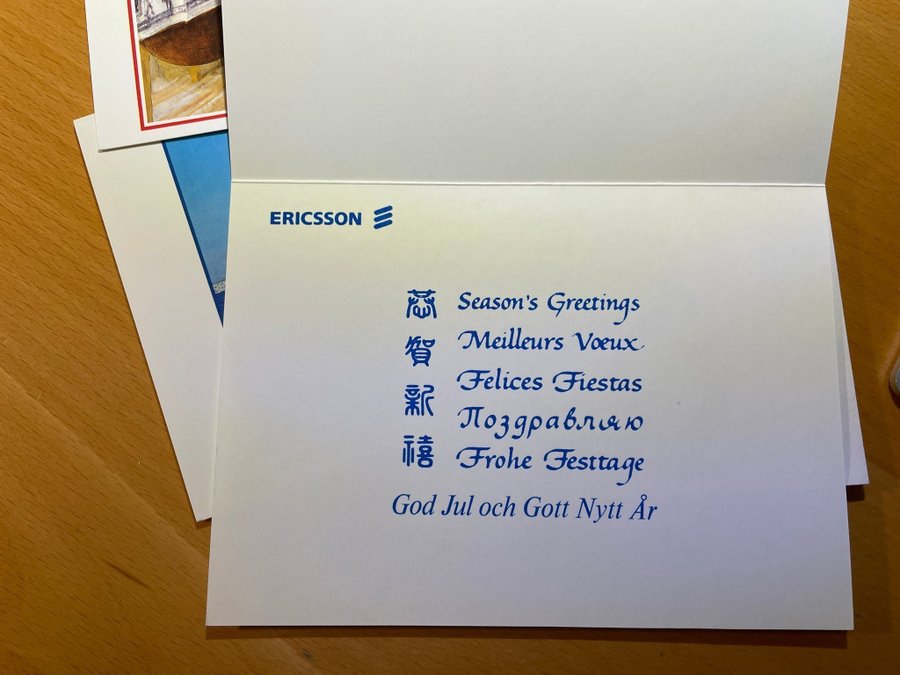 ERICSSON
恭賀新禧
Season's Greetings
Meilleurs Vœux
Felices Fiestas
Поздравляю
Frohe Festtage
God Jul och Gott Nytt År